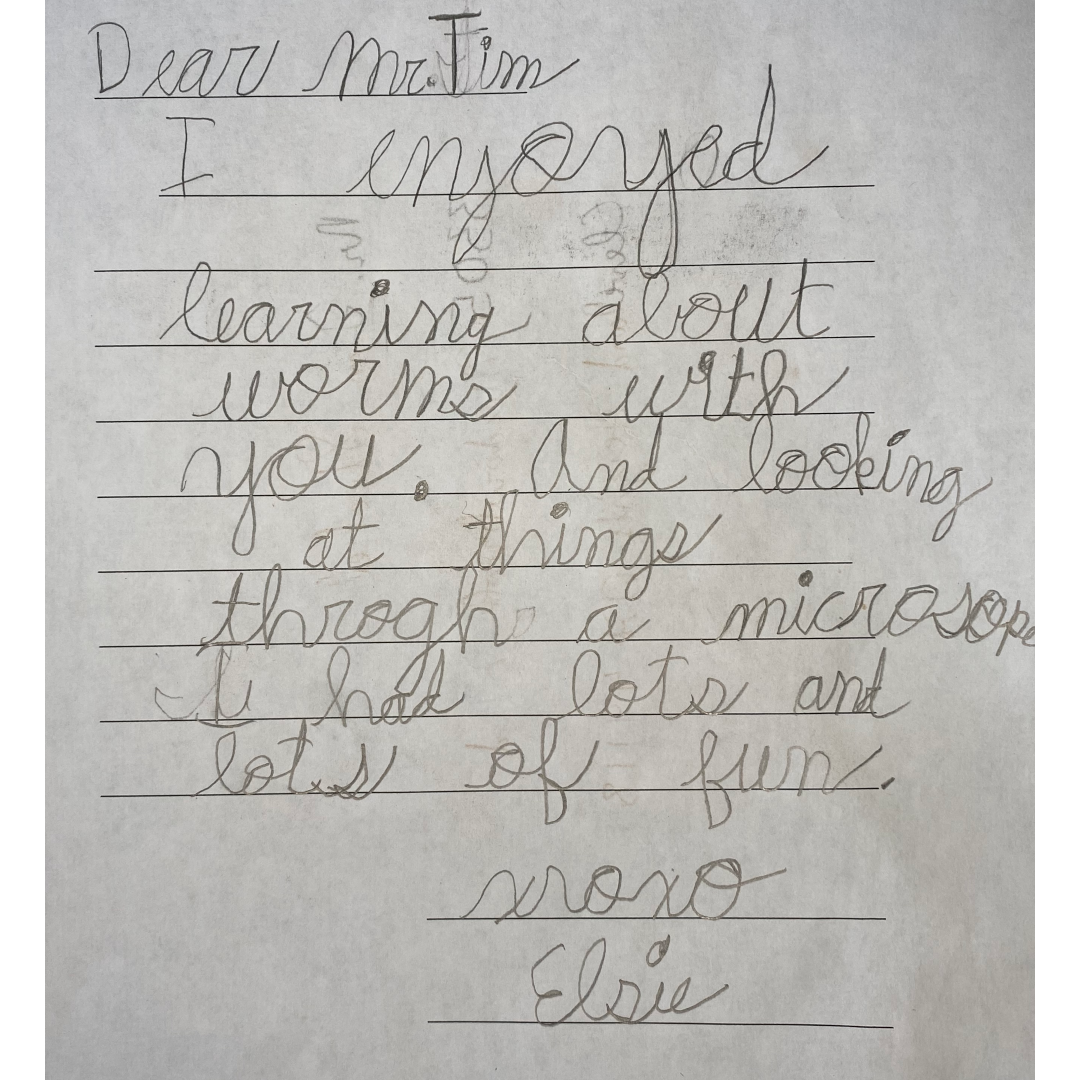 Dear Mr. Tim
I enjoyed
learning about
worms with
you. And looking
at things
throgh a microsope
I had lots and
lots of fun.
xoxo
Elsie